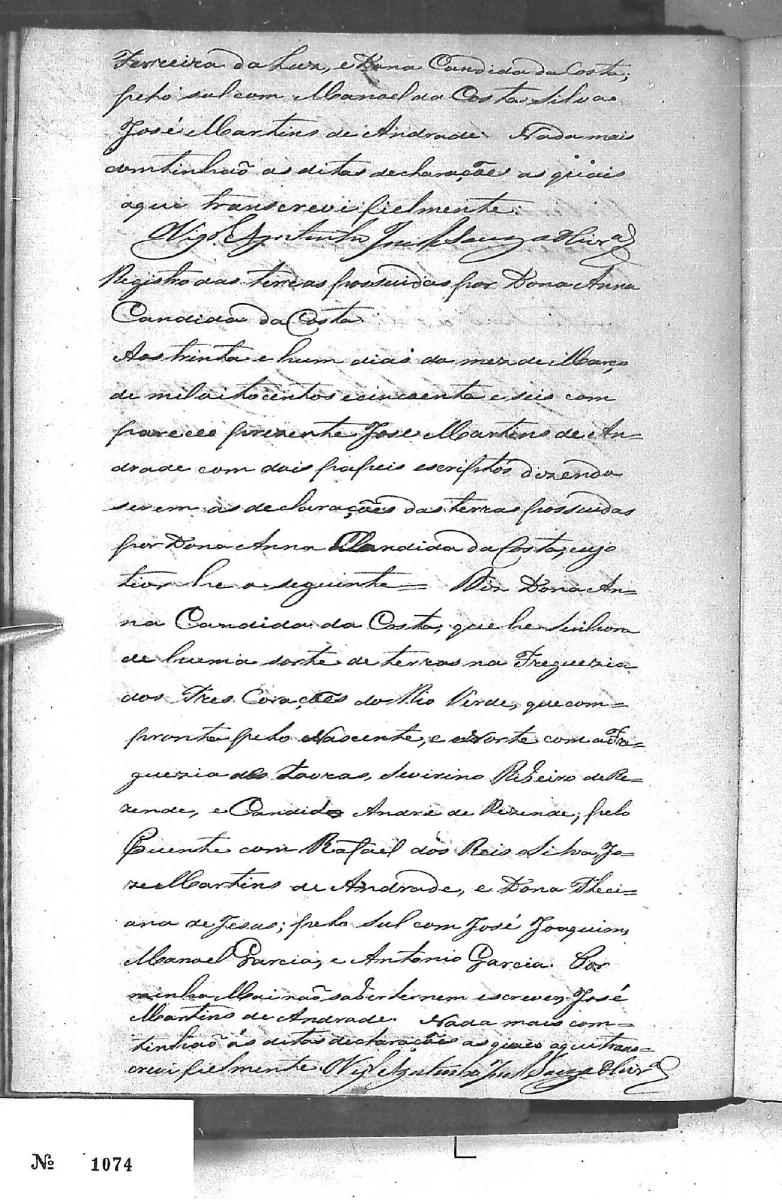 Ferreira da Luz, e Dona Candida da Costa;
pelo sul com Manoel da Costa Silva e
José Martins de Andrade. Nada mais
comtinhaõ as ditas declarações as quais
aqui transcrevi fielmente.
José Souza Olivrª
Registro das terras possuidas por Dona Anna
Candida da Costa.
Aos trinta e hum dias do mez de Março
de mil oitocentos e cincoenta e seis com
pareceo prezente José Martins de An=
drade com dois papeis escriptos dizendo
serem as declarações das terras possuidas
por Dona Anna Candida da Costa, cujo
tior he o seguinte = Diz Dona An=
na Candida da Costa, que he Senhora
de huma sorte de terras na Freguezia
dos Tres Corações do Rio Verde, que com=
fronta pelo Nascente, e Norte com a Fre=
guezia de Lavras, Severino Ribeiro de Re=
zende, e Candido André de Rezende; pelo
Puente com Rafael dos Reis e Silva, Jo=
ze Martins de Andrade, e Dona
ana de Jesus; pelo sul com José Joaquim,
Manoel Garcia, e Antonio Garcia. Por
minha Mai naõ saber ler nem escrever, José
Martins de Andrade. Nada mais com=
tinhaõ ás ditas declarações as quais aqui trans=
crevi fielmente. José Souza Olivrª
Nº 1074